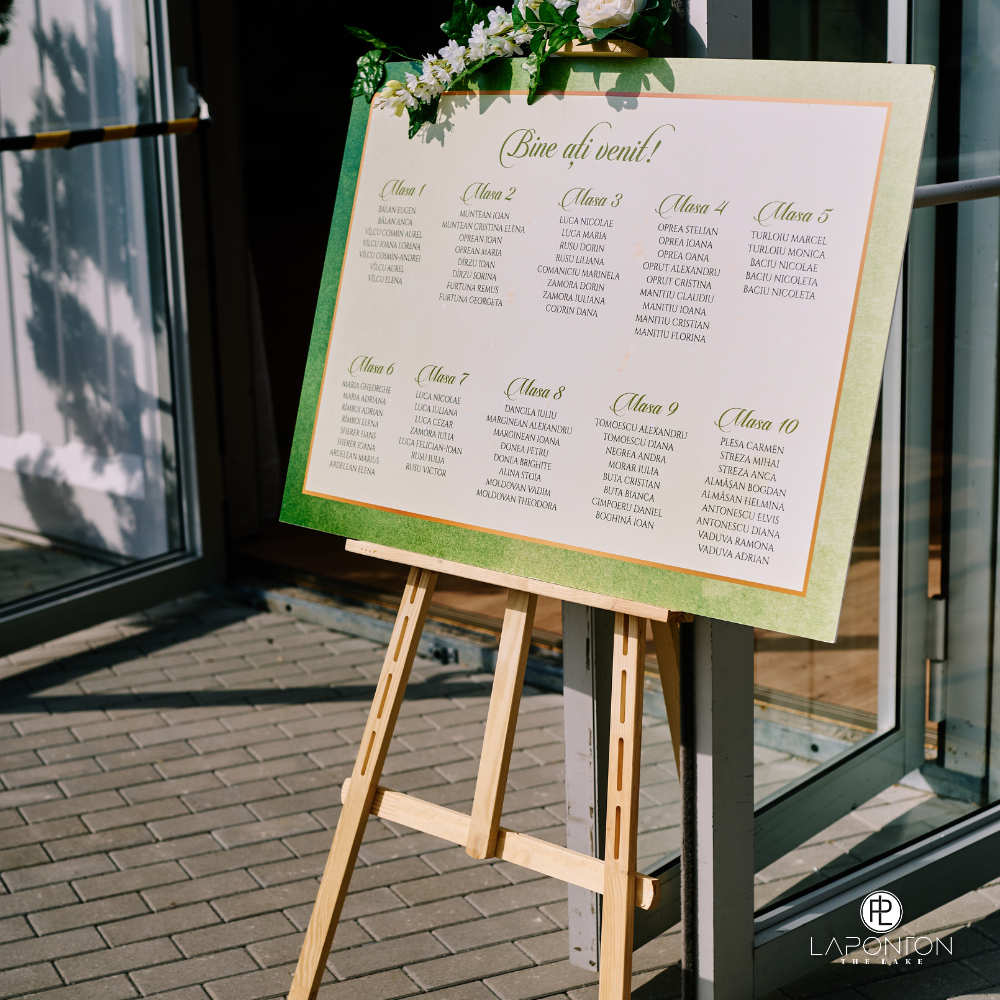 Bine ați venit!
Masa 1
BĂLAN EUGEN
BĂLAN ANCA
VÎLCU COSMIN AUREL
VÎLCU IOANA LORENA
VÎLCU COSMIN-ANDREI
VÎLCU AUREL
VÎLCU ELENA
Masa 2
MUNTEAN IOAN
MUNTEAN CRISTINA ELENA
OPREAN IOAN
OPREAN MARIA
DÎRZU IOAN
DÎRZU SORINA
FURTUNA REMUS
FURTUNA GEORGETA
Masa 3
LUCA NICOLAE
LUCA MARIA
RUSU DORIN
RUSU LILIANA
COMANICIU MARINELA
ZAMORA DORIN
ZAMORA IULIANA
CODRIN DANA
Masa 4
OPREA STELIAN
OPREA IOANA
OPREA OANA
OPRUT ALEXANDRU
OPRUT CRISTINA
MANITIU CLAUDIU
MANITIU IOANA
MANITIU CRISTIAN
MANITIU FLORINA
Masa 5
TURLOIU MARCEL
TURLOIU MONICA
BACIU NICOLAE
BACIU NICOLETA
BACIU NICOLETA
Masa 6
MARIA GHEORGHE
MARIA ADRIANA
RÎMBOI ADRIAN
RÎMBOI ELENA
SHERER HANS
SHERER IOANA
ARDELEAN MARIUS
ARDELEAN ELENA
Masa 7
LUCA NICOLAE
LUCA IULIANA
LUCA CEZAR
ZAMORA IULIA
LUCA FELICIAN-IOAN
RUSU IULIA
RUSU VICTOR
Masa 8
DANCILA IULIU
MARGINEAN ALEXANDRU
MARGINEAN IOANA
DONEA PETRU
DONEA BRIGHITE
ALINA STOIA
MOLDOVAN VADIM
MOLDOVAN THEODORA
Masa 9
TOMOESCU ALEXANDRU
TOMOESCU DIANA
NEGREA ANDRA
MORAR IULIA
BUTA CRISITAN
BUTA BIANCA
GIMPOERU DANIEL
BOGHINĂ IOAN
Masa 10
PLESA CARMEN
STREZA MIHAI
STREZA ANCA
ALMĂȘAN BOGDAN
ALMĂȘAN HELMINA
ANTONESCU ELVIS
ANTONESCU DIANA
VADUVA RAMONA
VADUVA ADRIAN
PL
LAPONTON
THE LAKE